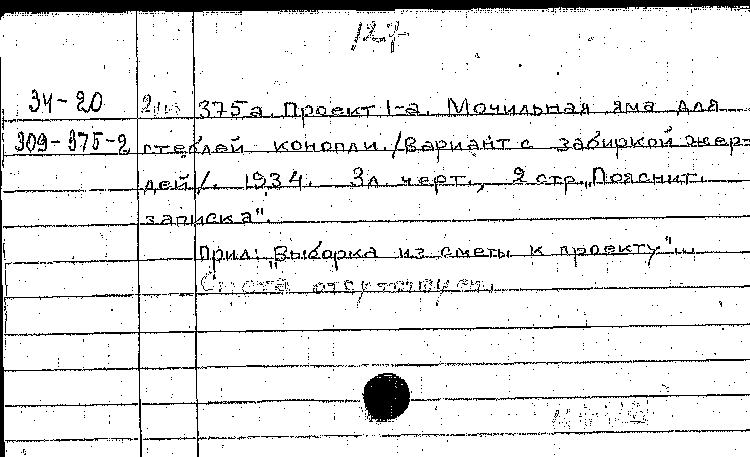 127
34-20 375а. Проект 1-а. Мочильная яма для
309-375-2 стеблей конопли. /Вариант с забиркой жер-
дей/. 1934. 3 л. черт., 2 стр. „Пояснит.
записка".
Прил: „Выборка из сметы к проекту"...
Смета отсутствует.